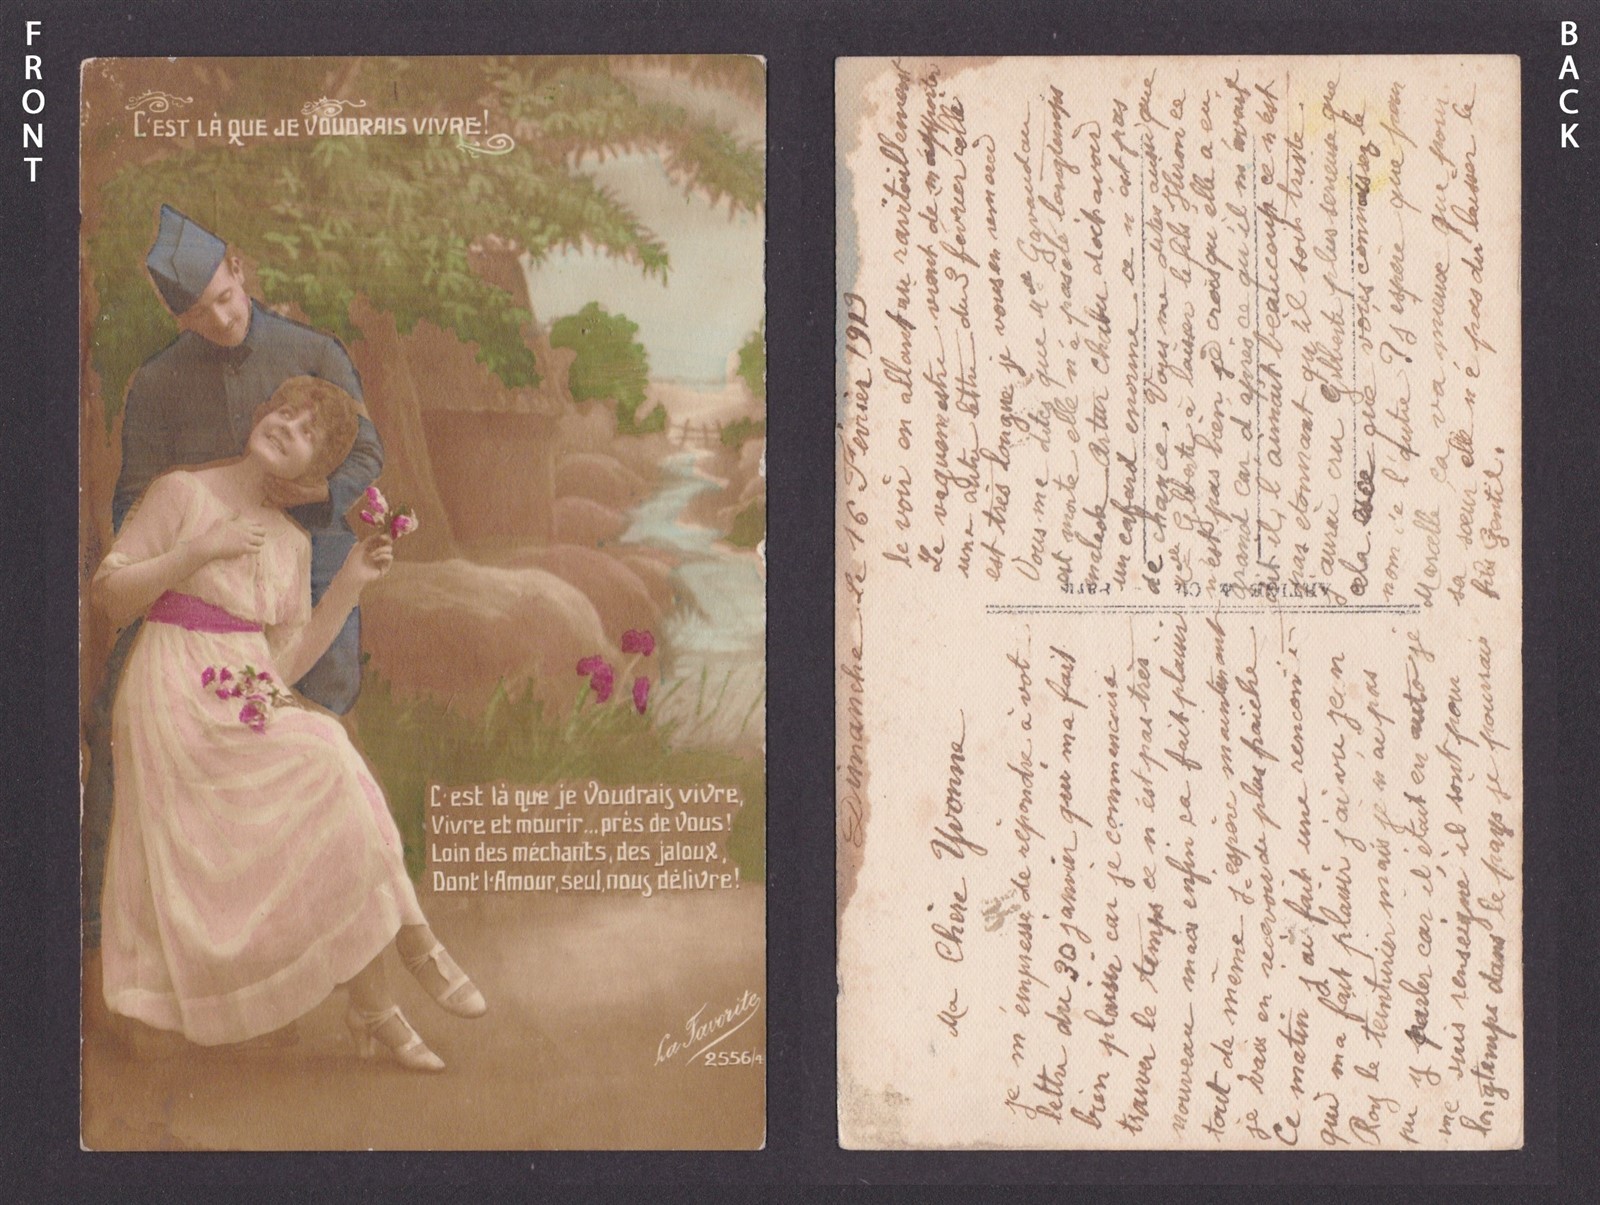 FRONT
C'EST LÀ QUE JE VOUDRAIS VIVRE!
C'est là que je Voudrais vivre,
Vivre et mourir... près de Vous!
Loin des méchants, des jaloux,
Dont l'Amour, seul, nous délivre!
La Favorite
2556/4
BACK
Dimanche Le 16 Février 1919
Ma Chère Yvonne
je m'empresse de repondre à vot
lettre du 30 janvier qui ma fais
bien plaisir car je commencais
traver le temps ce n'est pas très
nouveau mais enfin ca fait plaisir
tout de meme j'espère maintenant
je vais en recevoir de plus fraiche
Ce matin j'ai fait une rencont
qui m'a fait plaisir j'ai vu jean
Roy le teinturier mais je n'ai pas
pu y parler car il était en auto je
me suis renseigné il sont pour
longtemps dans le pays je pourrais
le voir en allant au ravitaillement
Le vaguemestre vient de m'apporter
une autre lettre du 3 février celle
est très longue je vous en remerci
Vous me dites que Mme Gavaudan
est morte elle n'a pas été longtemps
malade Artur cherche d'achavoir
un cafard enorme ce n'est pas
de chance. Vous me dites aussi que
Mme Gilberte à laisser le fils Huron ce
n'est pas bien, je crois qu'elle a eu
grand car d'après ce qu'il m'avait
dit il l'aimait beaucoup ce n'est
pas etonnant qu'il soit triste.
J'aurai cru Gilberte plus serieuse que
cela. Est ce que vous connaissez le
nom de l'autre? J'espère que pour
Marcelle ça va mieux que pour
sa soeur elle n'a pas du laisser le
fils Gentil.